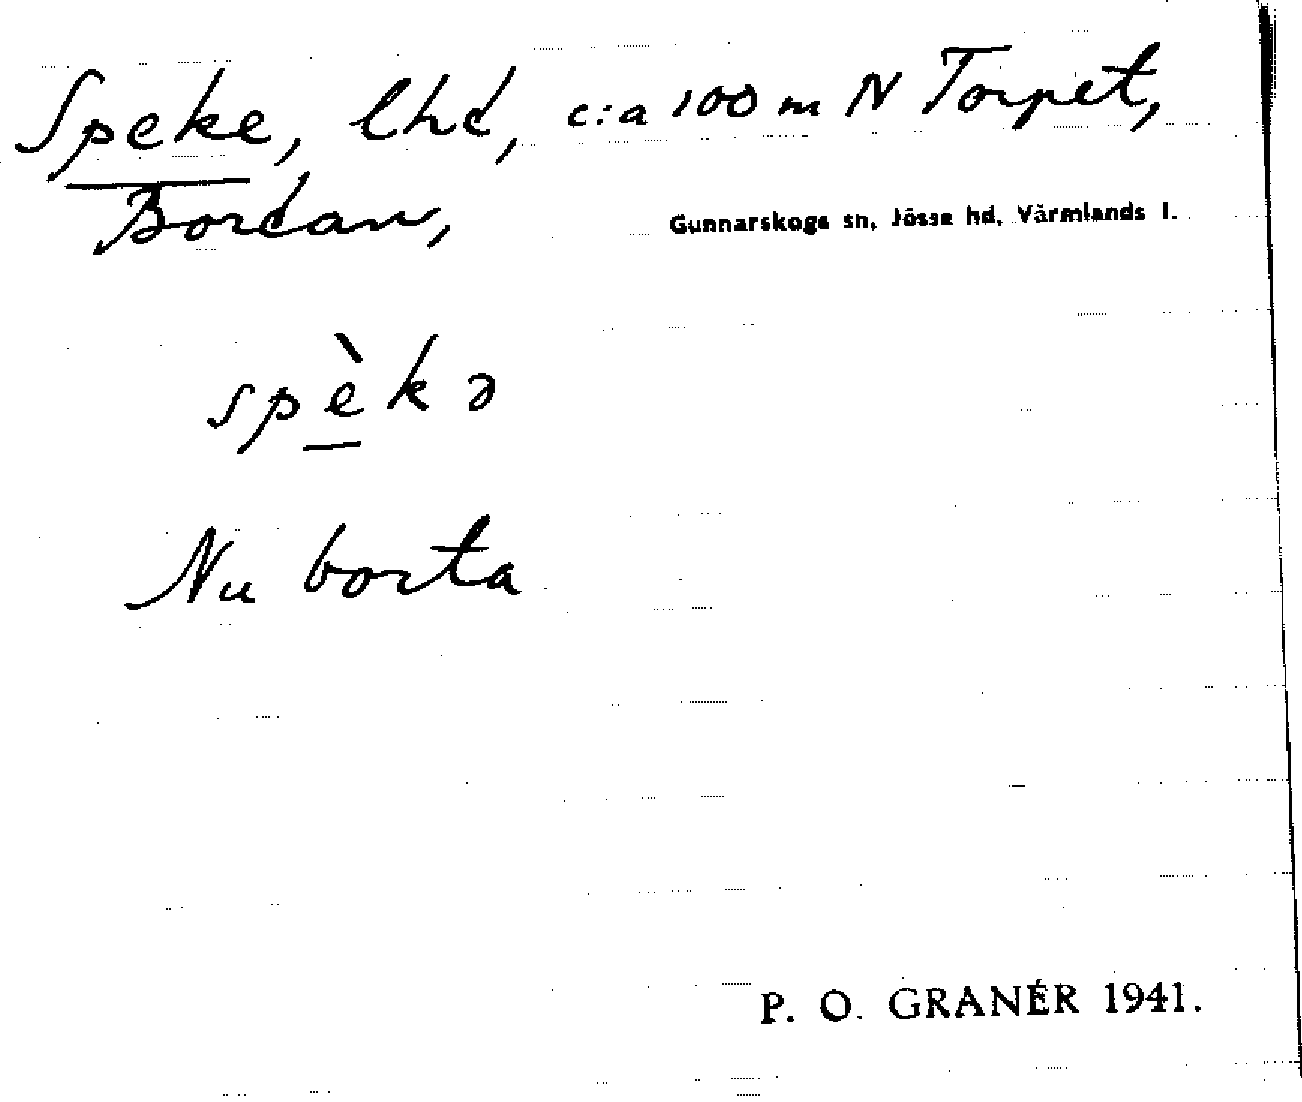 Speke, lhd, c:a 100 m N Torpet,
Bordan,
Gunnarskogs sn, Jösse hd, Värmlands l.
spèkə
Nu borta
P. O. GRANÉR 1941.